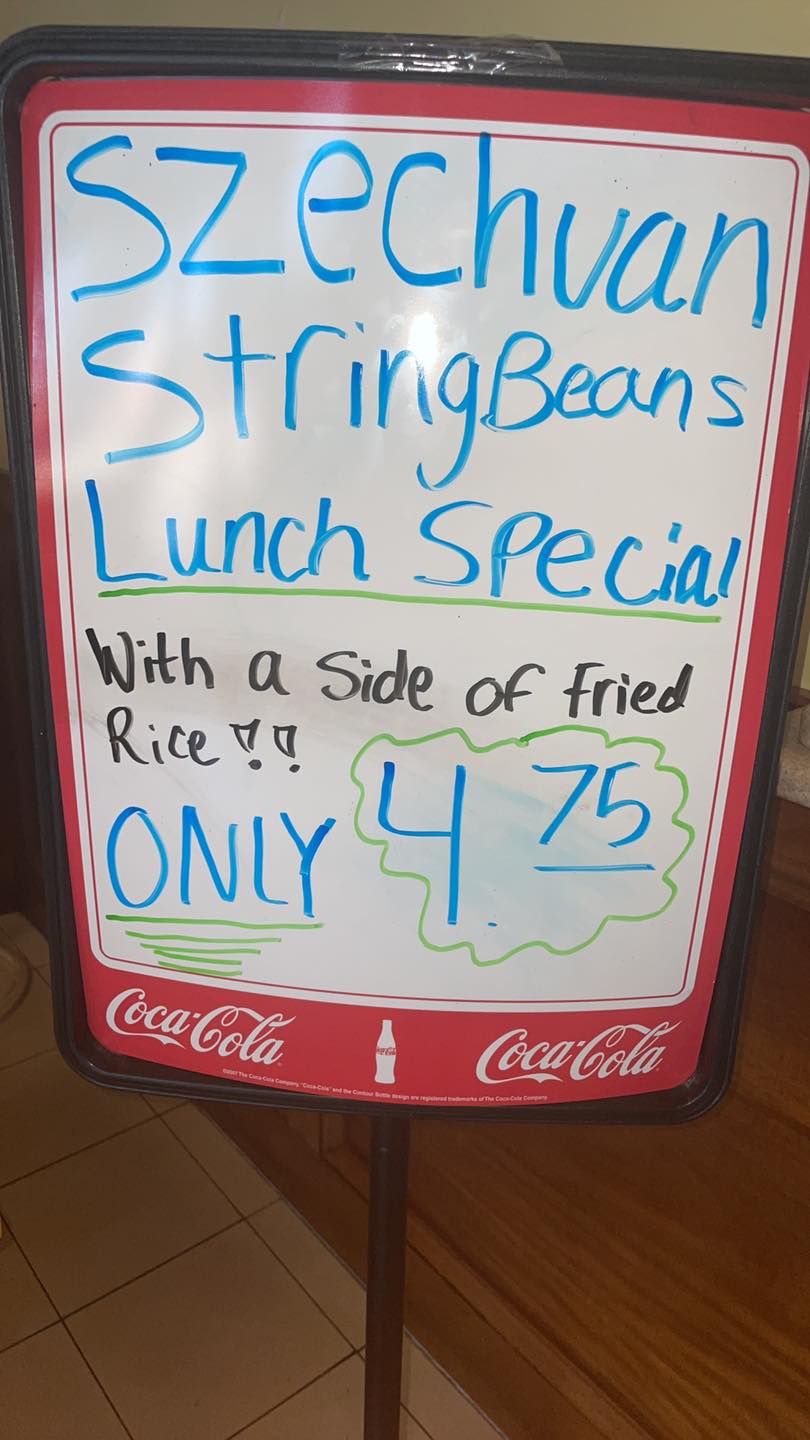 Szechuan
String Beans
Lunch Special
With a Side of Fried
Rice!!
ONLY 4.75
Coca-Cola Coca-Cola
©2007 The Coca-Cola Company. "Coca-Cola" and the Contour Bottle design are registered trademarks of The Coca-Cola Company.